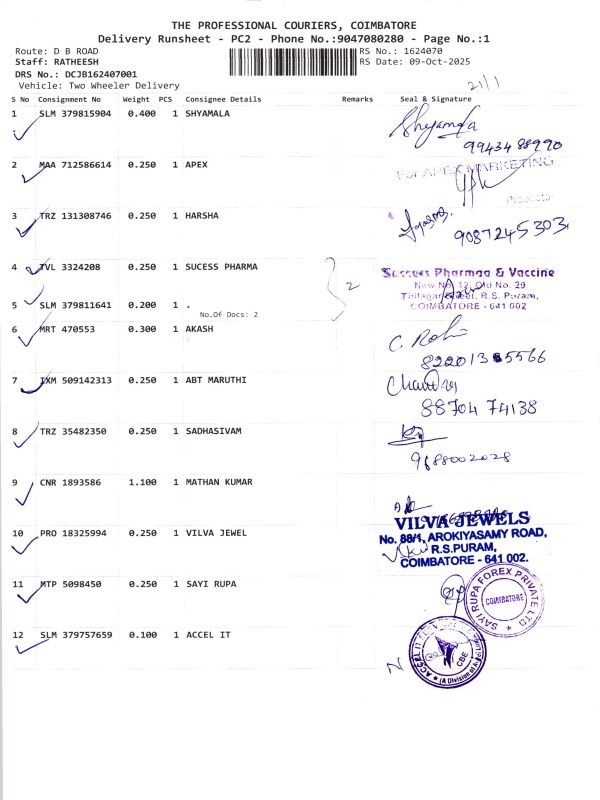 THE PROFESSIONAL COURIERS, COIMBATORE
Delivery Runsheet - PC2 - Phone No.:9047080280 - Page No.:1
Route: D B ROAD
RS No.: 1624070
Staff: RATHEESH
RS Date: 09-Oct-2025
DRS No.: DCJB162407001
Vehicle: Two Wheeler Delivery
21/1
S No Consignment No Weight PCS Consignee Details Remarks Seal & Signature
1 SLM 379815904 0.400 1 SHYAMALA
Shyamala
9943488990
2 MAA 712586614 0.250 1 APEX
For APEX MARKETING
3 TRZ 131308746 0.250 1 HARSHA
9087245303
4 TVL 3324208 0.250 1 SUCESS PHARMA
2
Success Pharmaa & Vaccine
New No. 12, Old No. 29
Thilagar Street, R.S. Puram,
COIMBATORE - 641 002
5 SLM 379811641 0.200 1 .
No.Of Docs: 2
6 MRT 470553 0.300 1 AKASH
7 IXM 509142313 0.250 1 ABT MARUTHI
88704 74138
8 TRZ 35482350 0.250 1 SADHASIVAM
9688002028
9 CNR 1893586 1.100 1 MATHAN KUMAR
10 PRO 18325994 0.250 1 VILVA JEWEL
VILVA JEWELS
No. 88/1, AROKIYASAMY ROAD,
R.S.PURAM,
COIMBATORE - 641 002.
11 MTP 5098450 0.250 1 SAYI RUPA
SAYI RUPA FOREX PRIVATE LTD
COIMBATORE
12 SLM 379757659 0.100 1 ACCEL IT
CBE